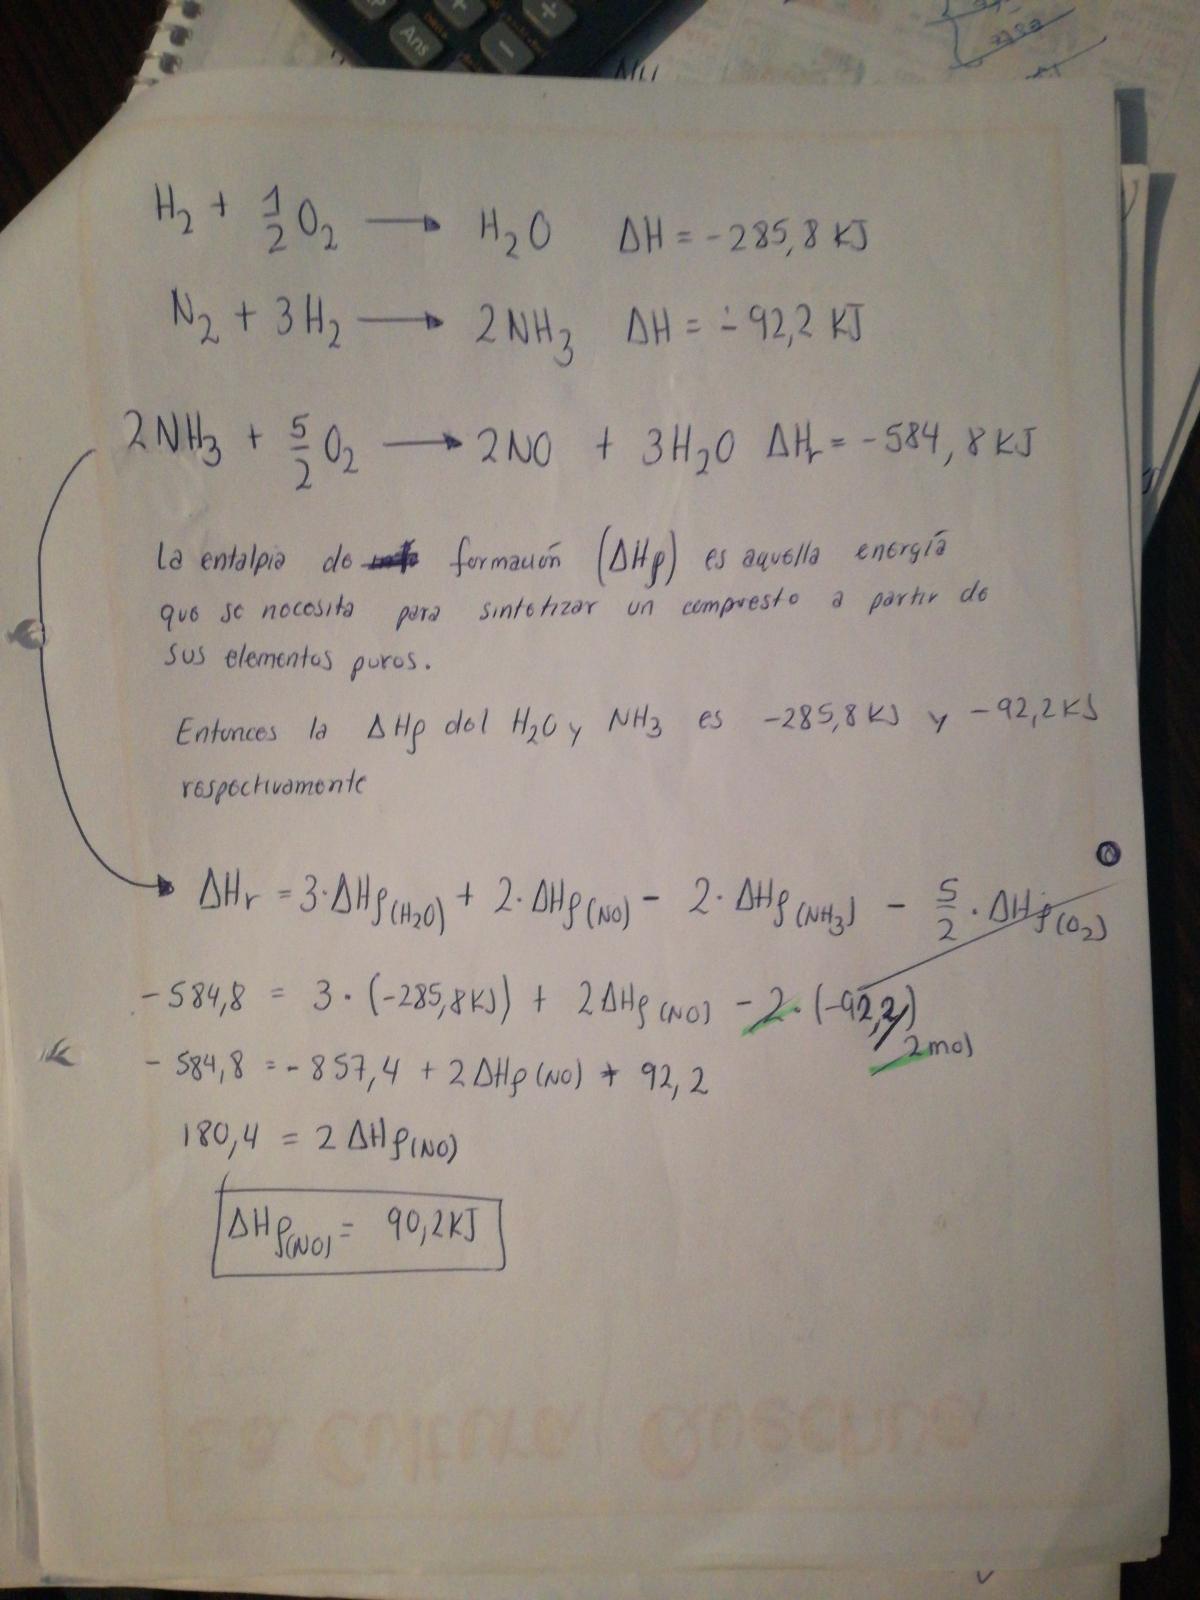 Ans
H₂ + 1/2 O₂ → H₂O ΔH = -285,8 KJ
N₂ + 3H₂ → 2NH₃ ΔH = -92,2 KJ
2NH₃ + 5/2 O₂ → 2NO + 3H₂O ΔHr = -584,8 KJ
La entalpia de formación (ΔHf) es aquella energía
que se necesita para sintetizar un compuesto a partir de
sus elementos puros.
Entonces la ΔHf del H₂O y NH₃ es -285,8 KJ y -92,2 KJ
respectivamente
0
ΔHr = 3·ΔHf(H₂O) + 2·ΔHf(NO) - 2·ΔHf(NH₃) - 5/2·ΔHf(O₂)
-584,8 = 3·(-285,8KJ) + 2ΔHf(NO) - 2·(-92,2/2mol)
-584,8 = -857,4 + 2ΔHf(NO) + 92,2
180,4 = 2ΔHf(NO)
ΔHf(NO) = 90,2KJ
La Cultura Quechua